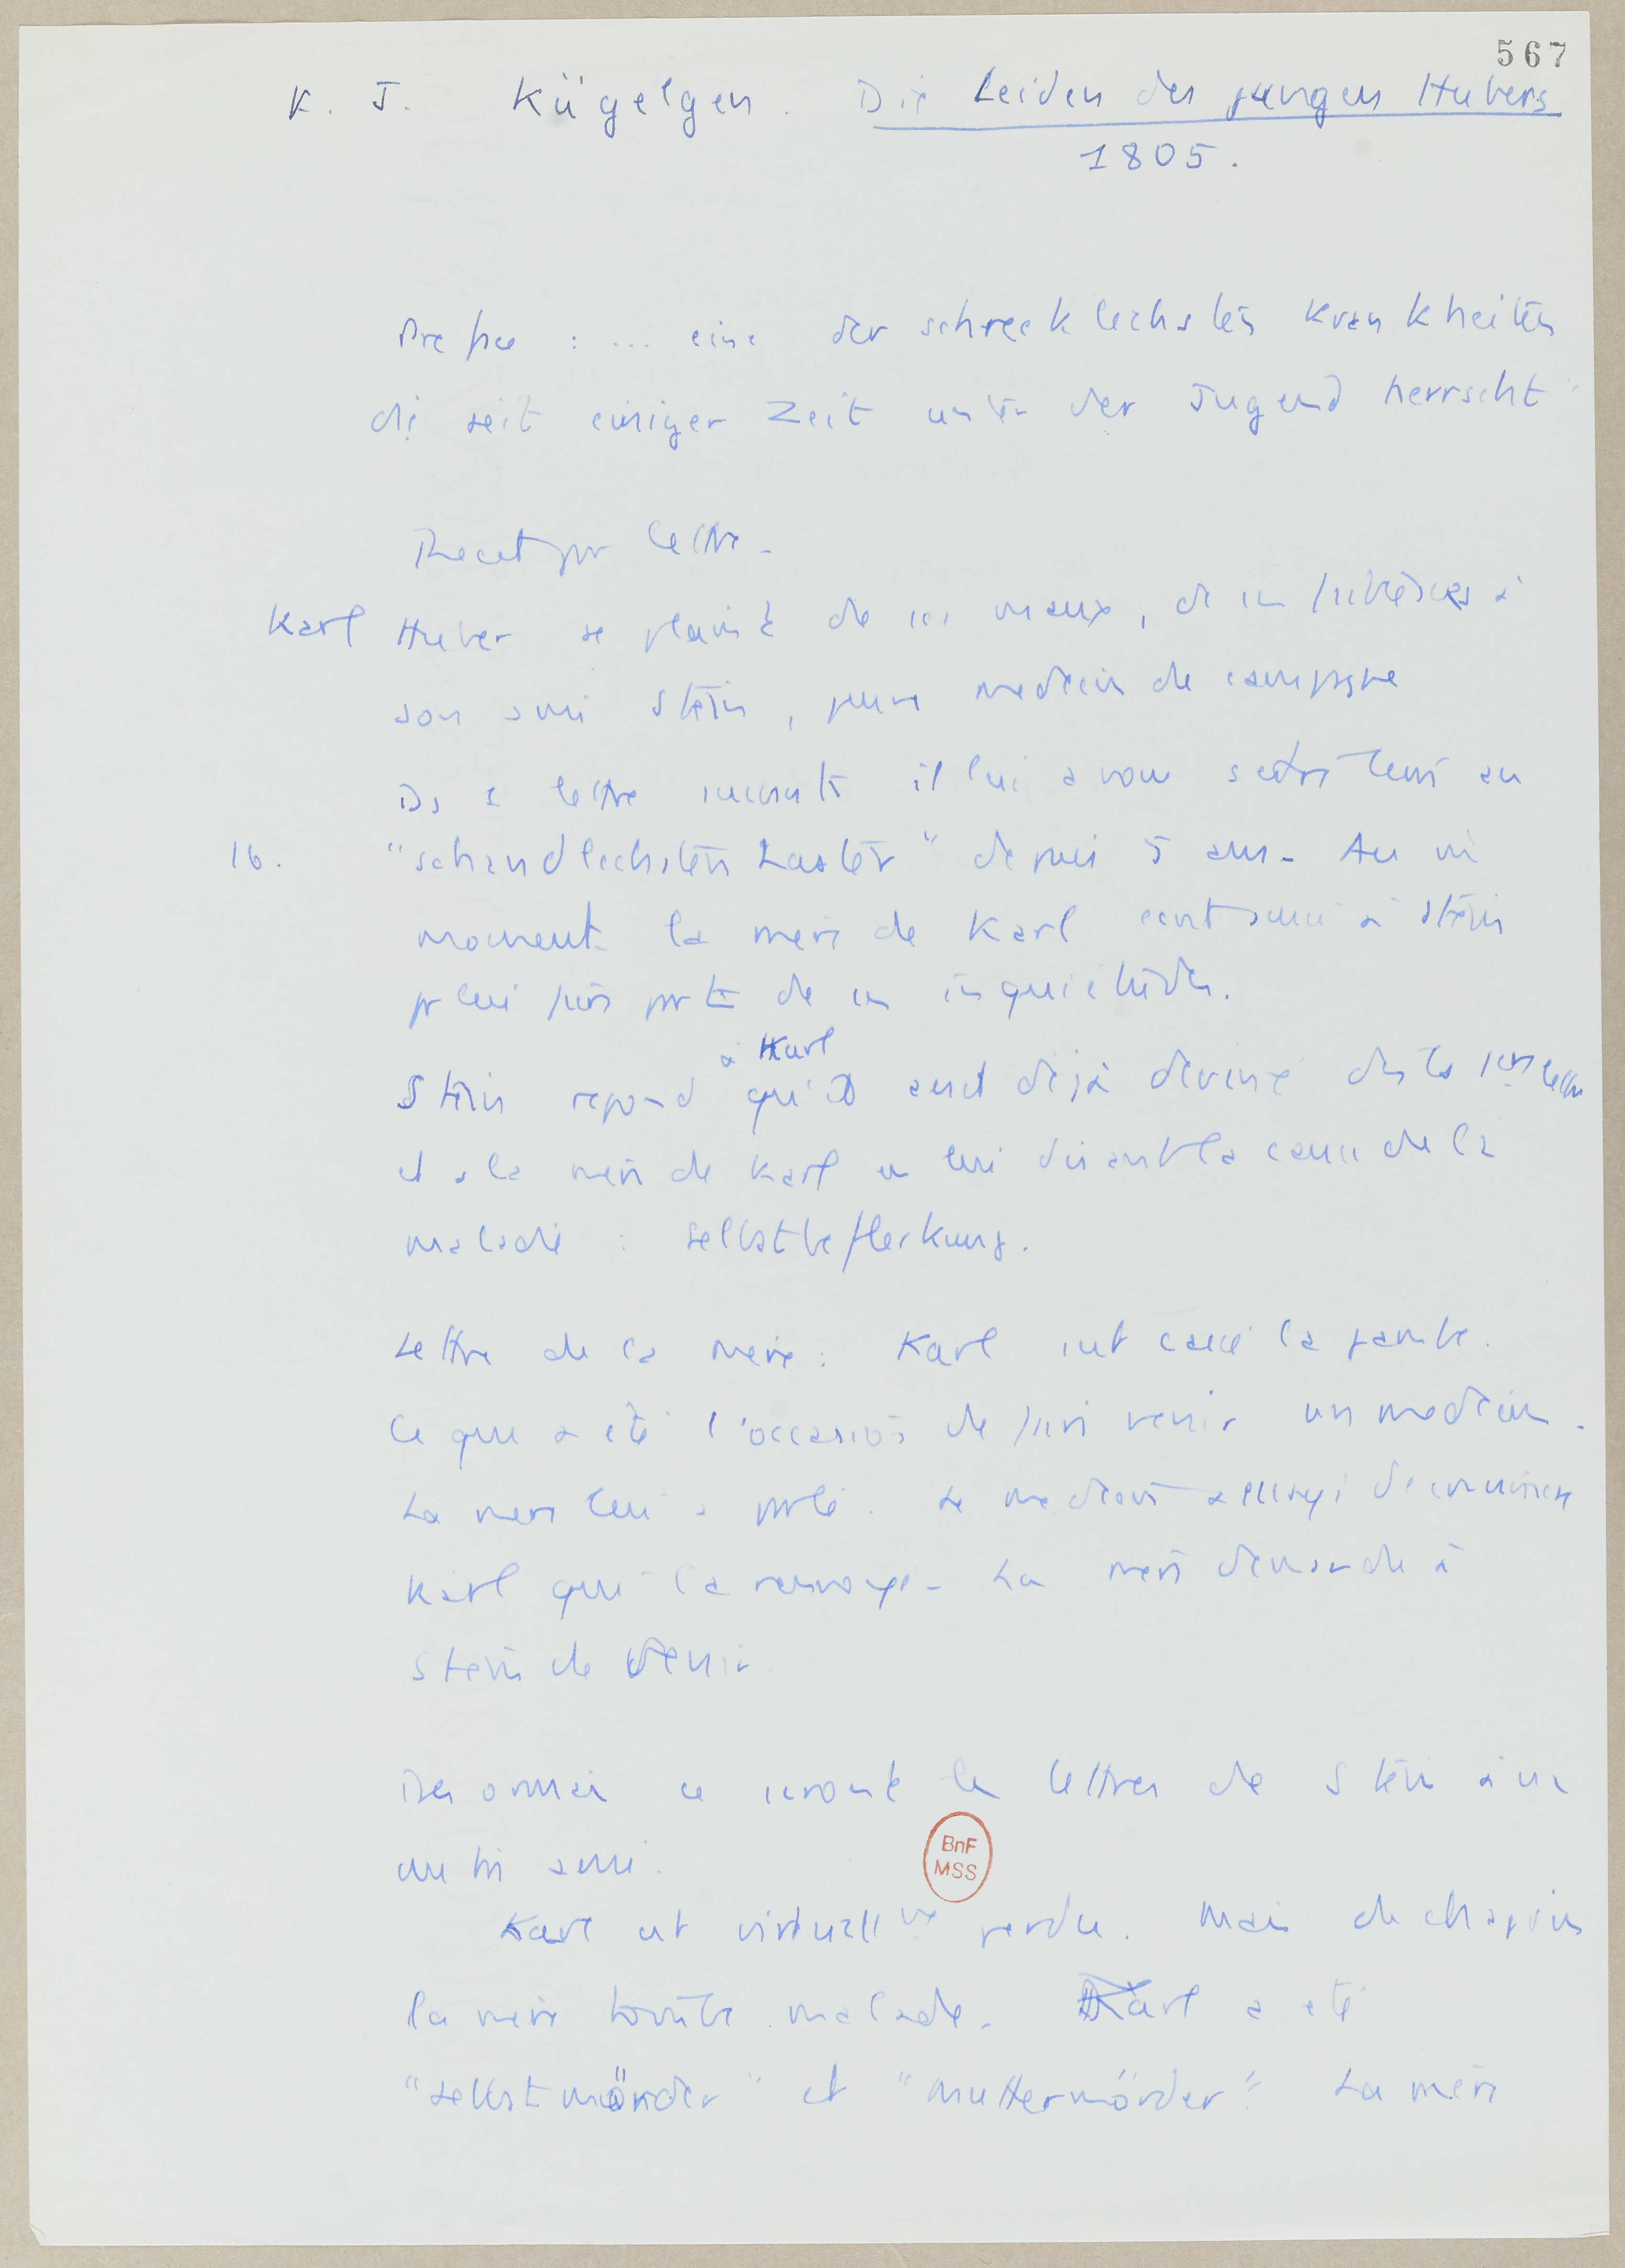 567
K. J. Kügelgen. Die Leiden des jungen Hubers
1805.
Preface : ... eine der schrecklechsten Krankheiten
die seit einiger Zeit unter der Jugend herrscht"
Recit par lettre.
Karl Huber se plaint de ses maux, de ses faiblesses à
son ami Stein, jeune medecin de campagne
Ds la lettre suivante il lui avoue s'adonner au
16. "schandlechsten Laster" depuis 5 ans. Au m
moment la mere de Karl ecrit aussi à Stein
pr lui faire part de ses inquietudes.
à Karl
Stein repond qu'il avait déjà deviné ds la 1ere lettre
et à la mere de Karl en lui disant la cause de la
maladie : Selbstbefleckung.
Lettre de la mere : Karl s'est cassé la jambe.
Ce qui a été l'occasion de faire venir un medecin.
La mere lui a parlé. Le medecin a essayé de convaincre
Karl qui l'a renvoyé. La mere demande à
Stein de venir.
Desormais ce seront les lettres de Stein à un
autre ami.
BnF
MSS
Karl est virtuellt perdu. Mais de chagrin
la mere tombe malade. Karl a été
"selbstmörder" et "muttermörder". La mere